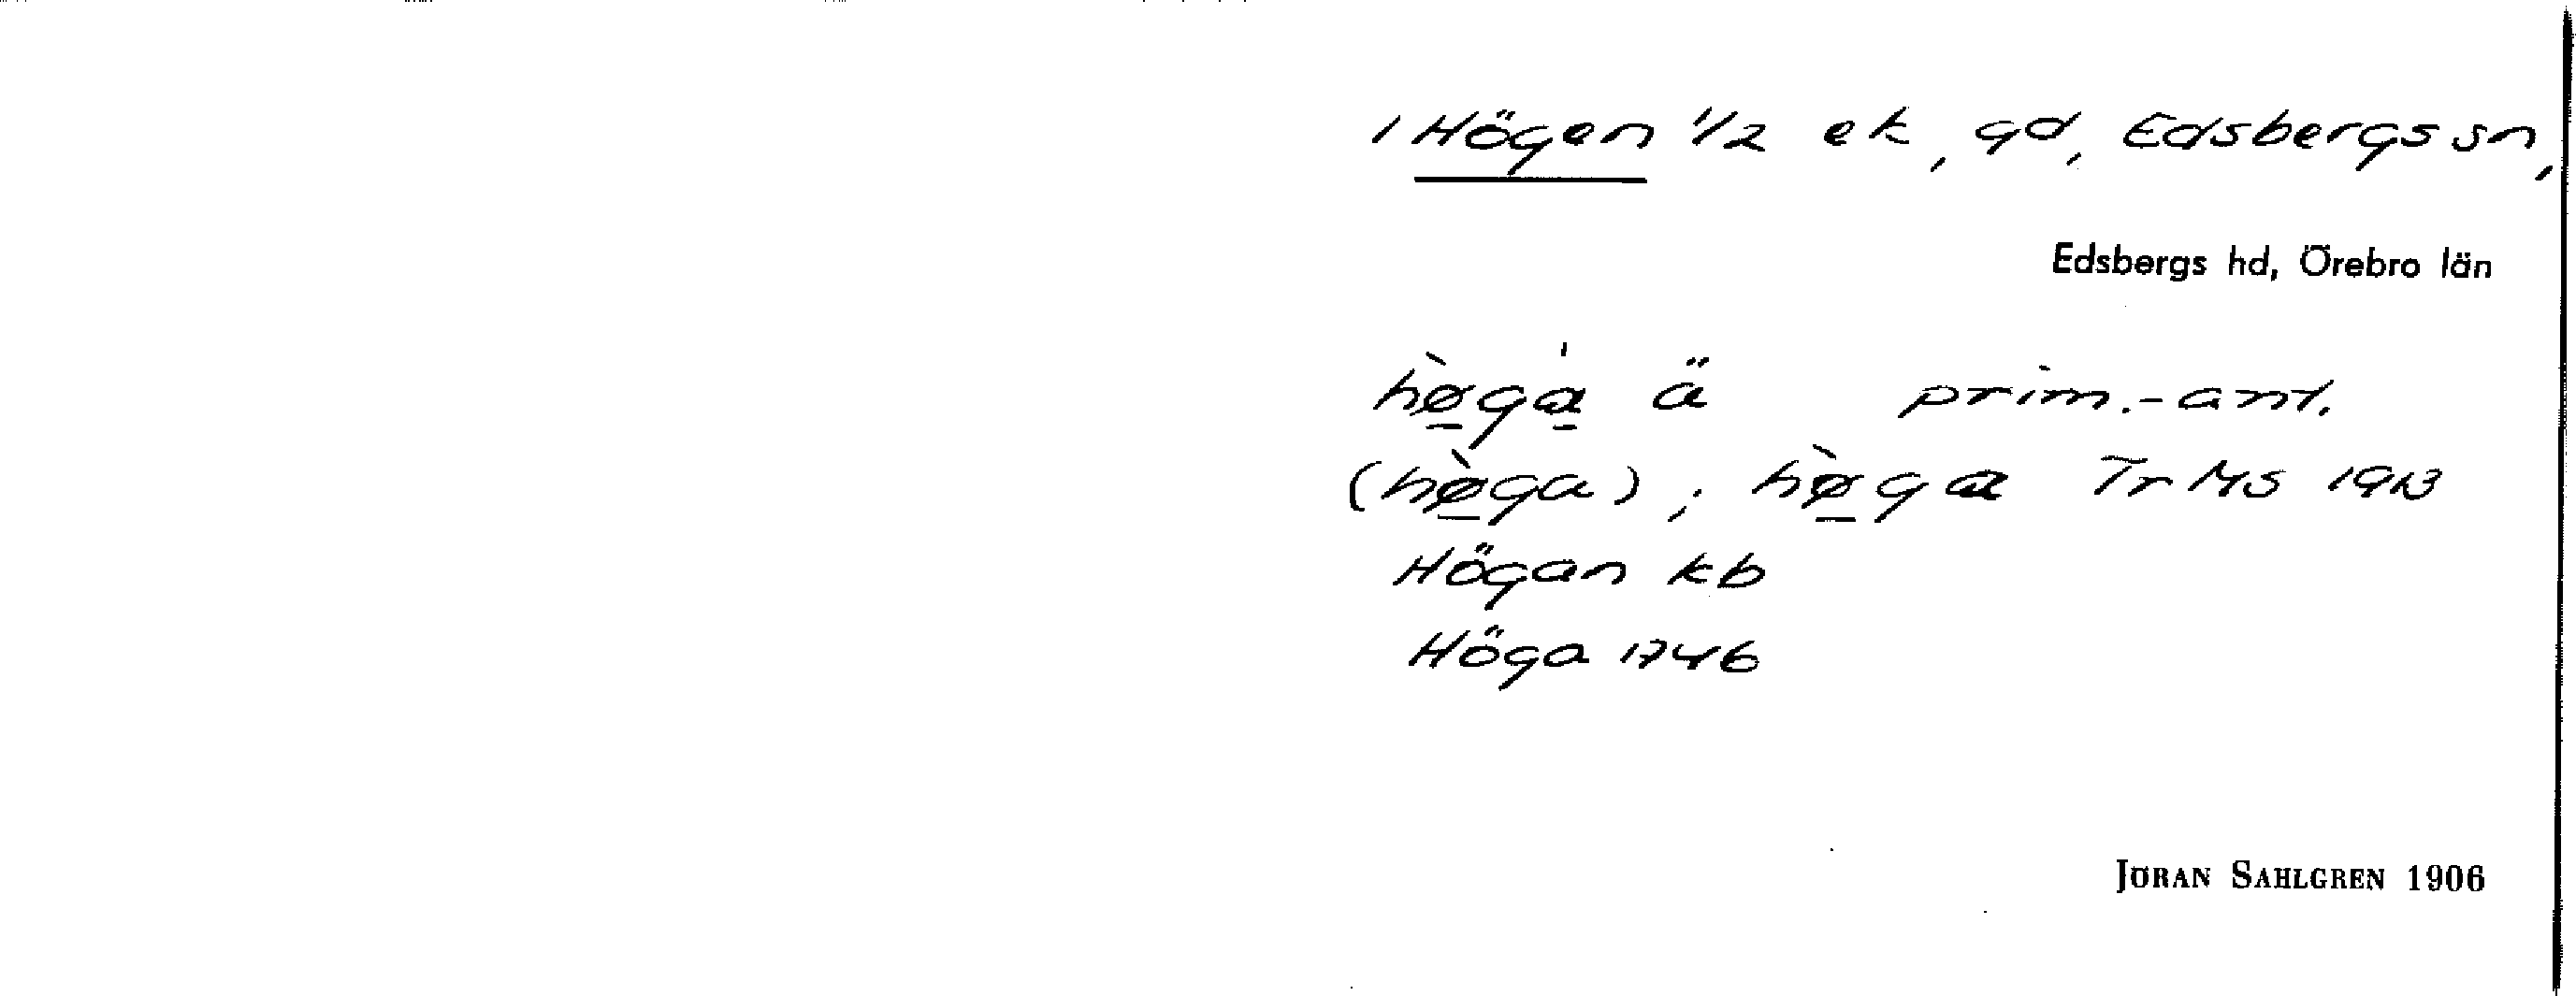 1 Högen 1/2 ek, gd, Edsbergs sn,
Edsbergs hd, Örebro län
hø̱̀ga̱̍ ä prim.-ant.
(hø̱̀ga); hø̱̀gα Tr MS 1913
Högan kb
Höga 1746
JÖRAN SAHLGREN 1906